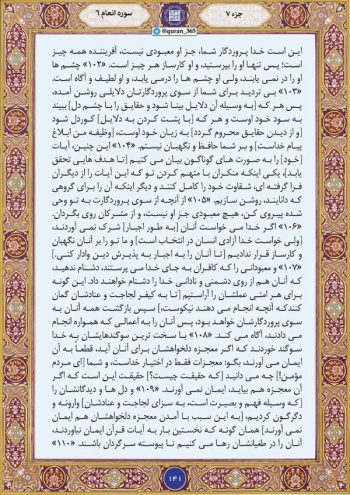 جزء ۷
@quran_365
سوره انعام ۶
این است خدا پروردگار شما، جز او معبودی نیست، آفریننده همه چیز
است؛ پس تنها او را بپرستید، و او کارساز هر چیز است. «۱۰۲» چشم ها
او را در نمی یابند، ولی او چشم ها را درمی یابد، و او لطیف و آگاه است.
«۱۰۳» بی تردید برای شما از سوی پروردگارتان دلایلی روشن آمده،
پس هر که [به وسیله آن دلایل بینا شود و حقایق را با چشم دل] ببیند
به سود خود اوست، و هر که [با پشت کردن به دلایل] کوردل شود
[و از دیدن حقایق محروم گردد] به زیان خود اوست، [وظیفه من ابلاغ
پیام خداست] و بر شما حافظ و نگهبان نیستم. «۱۰۴» این چنین، آیات
[خود] را به صورت های گوناگون بیان می کنیم [تا هدف هایی تحقق
یابد]، یکی اینکه منکران با متهم کردن تو که این آیات را از دیگران
فرا گرفته ای، شقاوت خود را کامل کنند و دیگر اینکه آن را برای گروهی
که دانایند، روشن سازیم. «۱۰۵» از آنچه از سوی پروردگارت به تو وحی
شده پیروی کن، هیچ معبودی جز او نیست، و از مشرکان روی بگردان.
«۱۰۶» اگر خدا می خواست آنان [به طور اجبار] شرک نمی آوردند،
[ولی خواست خدا آزادی انسان در انتخاب است] و ما تو را بر آنان نگهبان
و کارساز قرار ندادیم [تا آنان را به اجبار به پذیرش دین وادار کنی.]
«۱۰۷» و معبودانی را که کافران به جای خدا می پرستند، دشنام ندهید،
که آنان هم از روی دشمنی و نادانی خدا را دشنام خواهند داد. این گونه
برای هر امتی عملشان را آراستیم [تا به کیفر لجاجت و عنادشان گمان
کنندکه آنچه انجام می دهند نیکوست،] سپس بازگشت همه آنان به
سوی پروردگارشان خواهد بود، پس آنان را به اعمالی که همواره انجام
می دادند، آگاه می کند. «۱۰۸» با سخت ترین سوگندهایشان به خدا
سوگند خوردند که اگر معجزه دلخواهشان برای آنان آید، قطعاً به آن
ایمان می آورند. بگو: معجزات فقط در اختیار خداست، و شما [ای مردم
مؤمن!] چه می دانید [که حقیقت چیست؟] حقیقت این است که اگر
آن معجزه هم بیاید، ایمان نمی آورند. «۱۰۹» و دل ها و دیدگانشان را
[که وسیله فهم و بصیرت است، به سزای لجاجت و عنادشان] وارونه و
دگرگون می کنیم، [به این سبب با آمدن معجزه دلخواهشان هم ایمان
نمی آورند] همان گونه که نخستین بار به آیات قرآن ایمان نیاوردند،
آنان را در طغیانشان رها می کنیم تا پیوسته سرگردان باشند. «۱۱۰»
۱۴۱